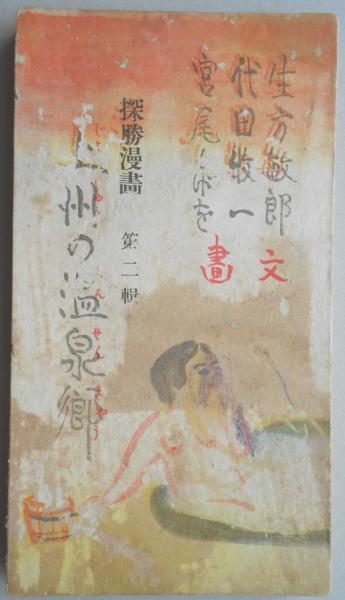 生方敏郎 文
代田收一
宮尾しげを 畫
探勝漫畫 第二輯
上州の温泉郷